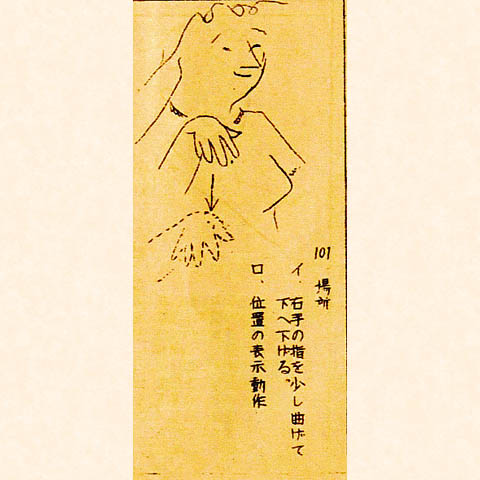 101
場所
イ、右手の指を少し曲げて
下へ下げる。
ロ、位置の表示動作